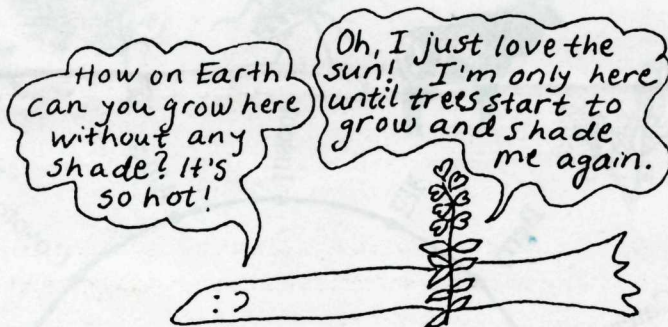 How on Earth
can you grow here
without any
shade? It's
so hot!
Oh, I just love the
sun! I'm only here
until trees start to
grow and shade
me again.